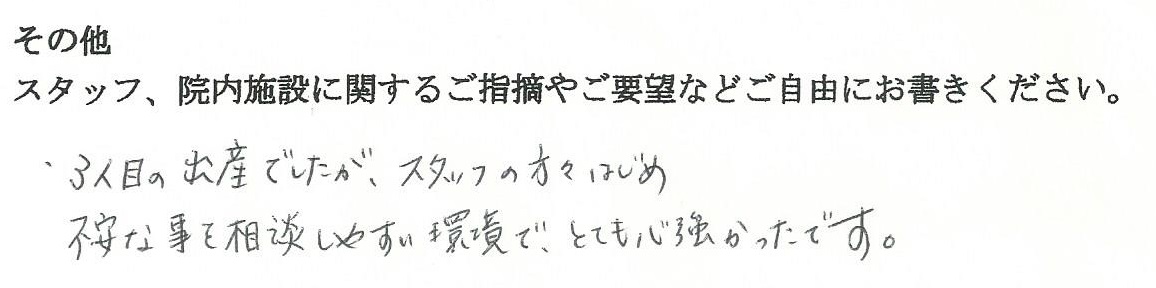 その他
スタッフ、院内施設に関するご指摘やご要望などご自由にお書きください。
・3人目の出産でしたが、スタッフの方々はじめ
不安な事を相談しやすい環境で、とても心強かったです。